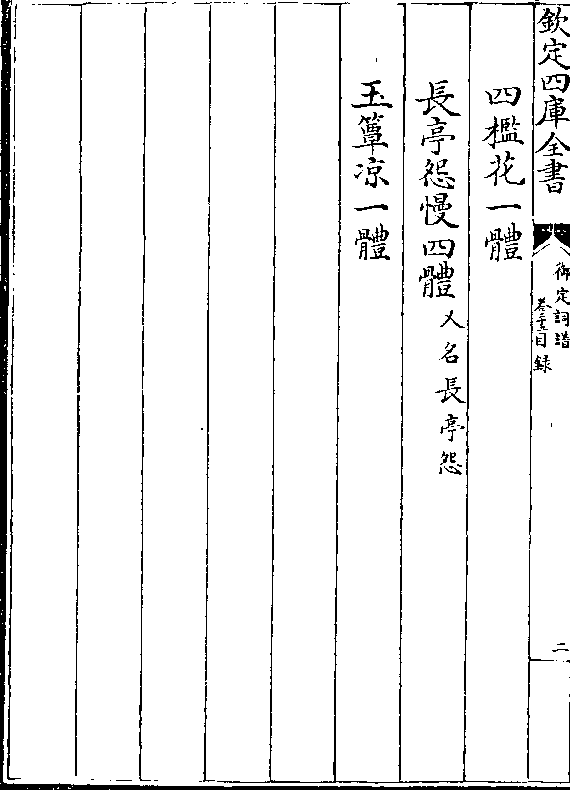 欽定四庫全書
御定詞譜
卷二十五目録
二
四檻花一體
長亭怨慢四體 又名長亭怨
玉簟凉一體